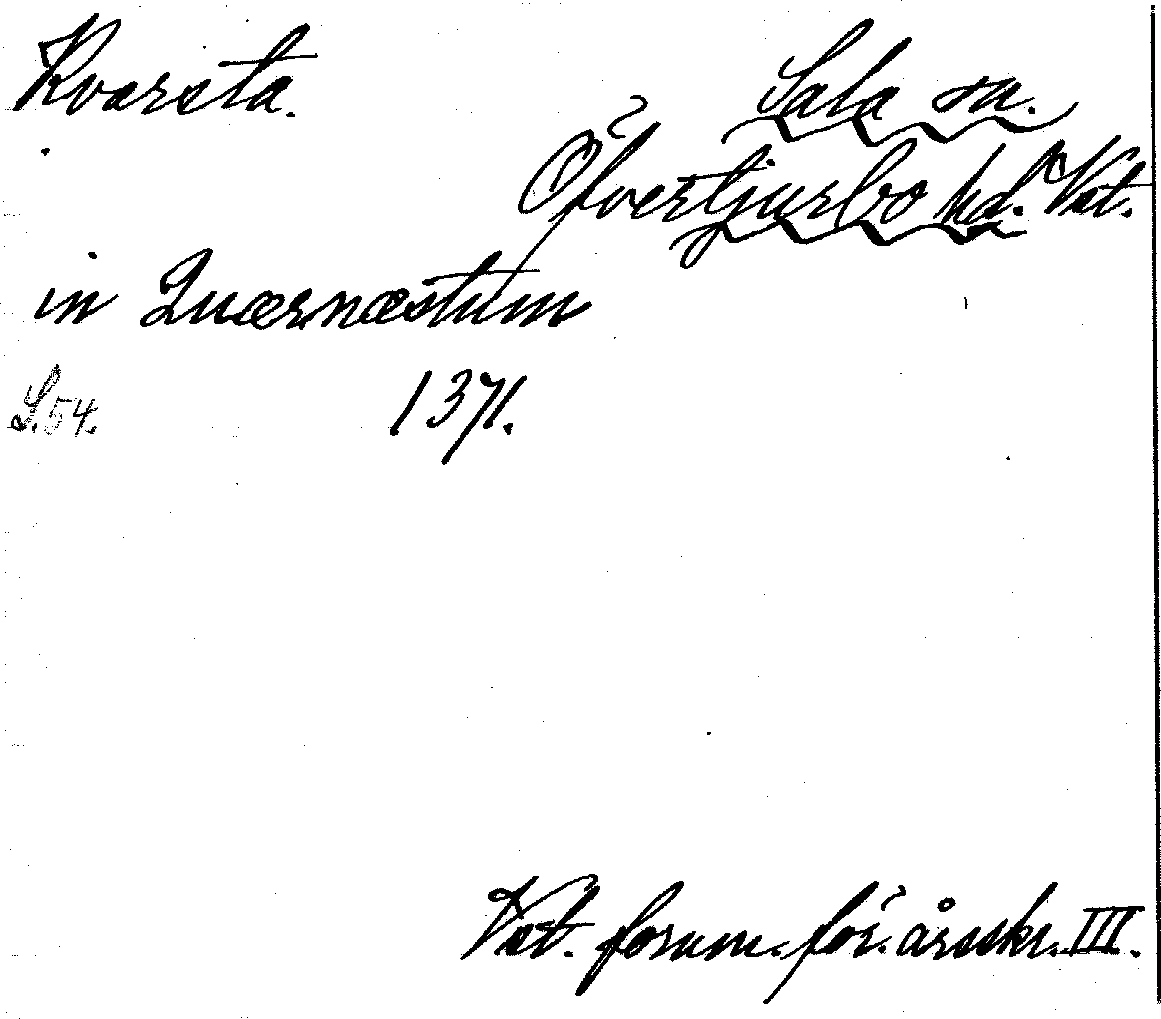 Kvarsta.
Sala sn.
Öfvertjurbo hd. Vst.
in Quærnæstum
S. 54.
1371.
Vst. fornm. för. årsskr. III.